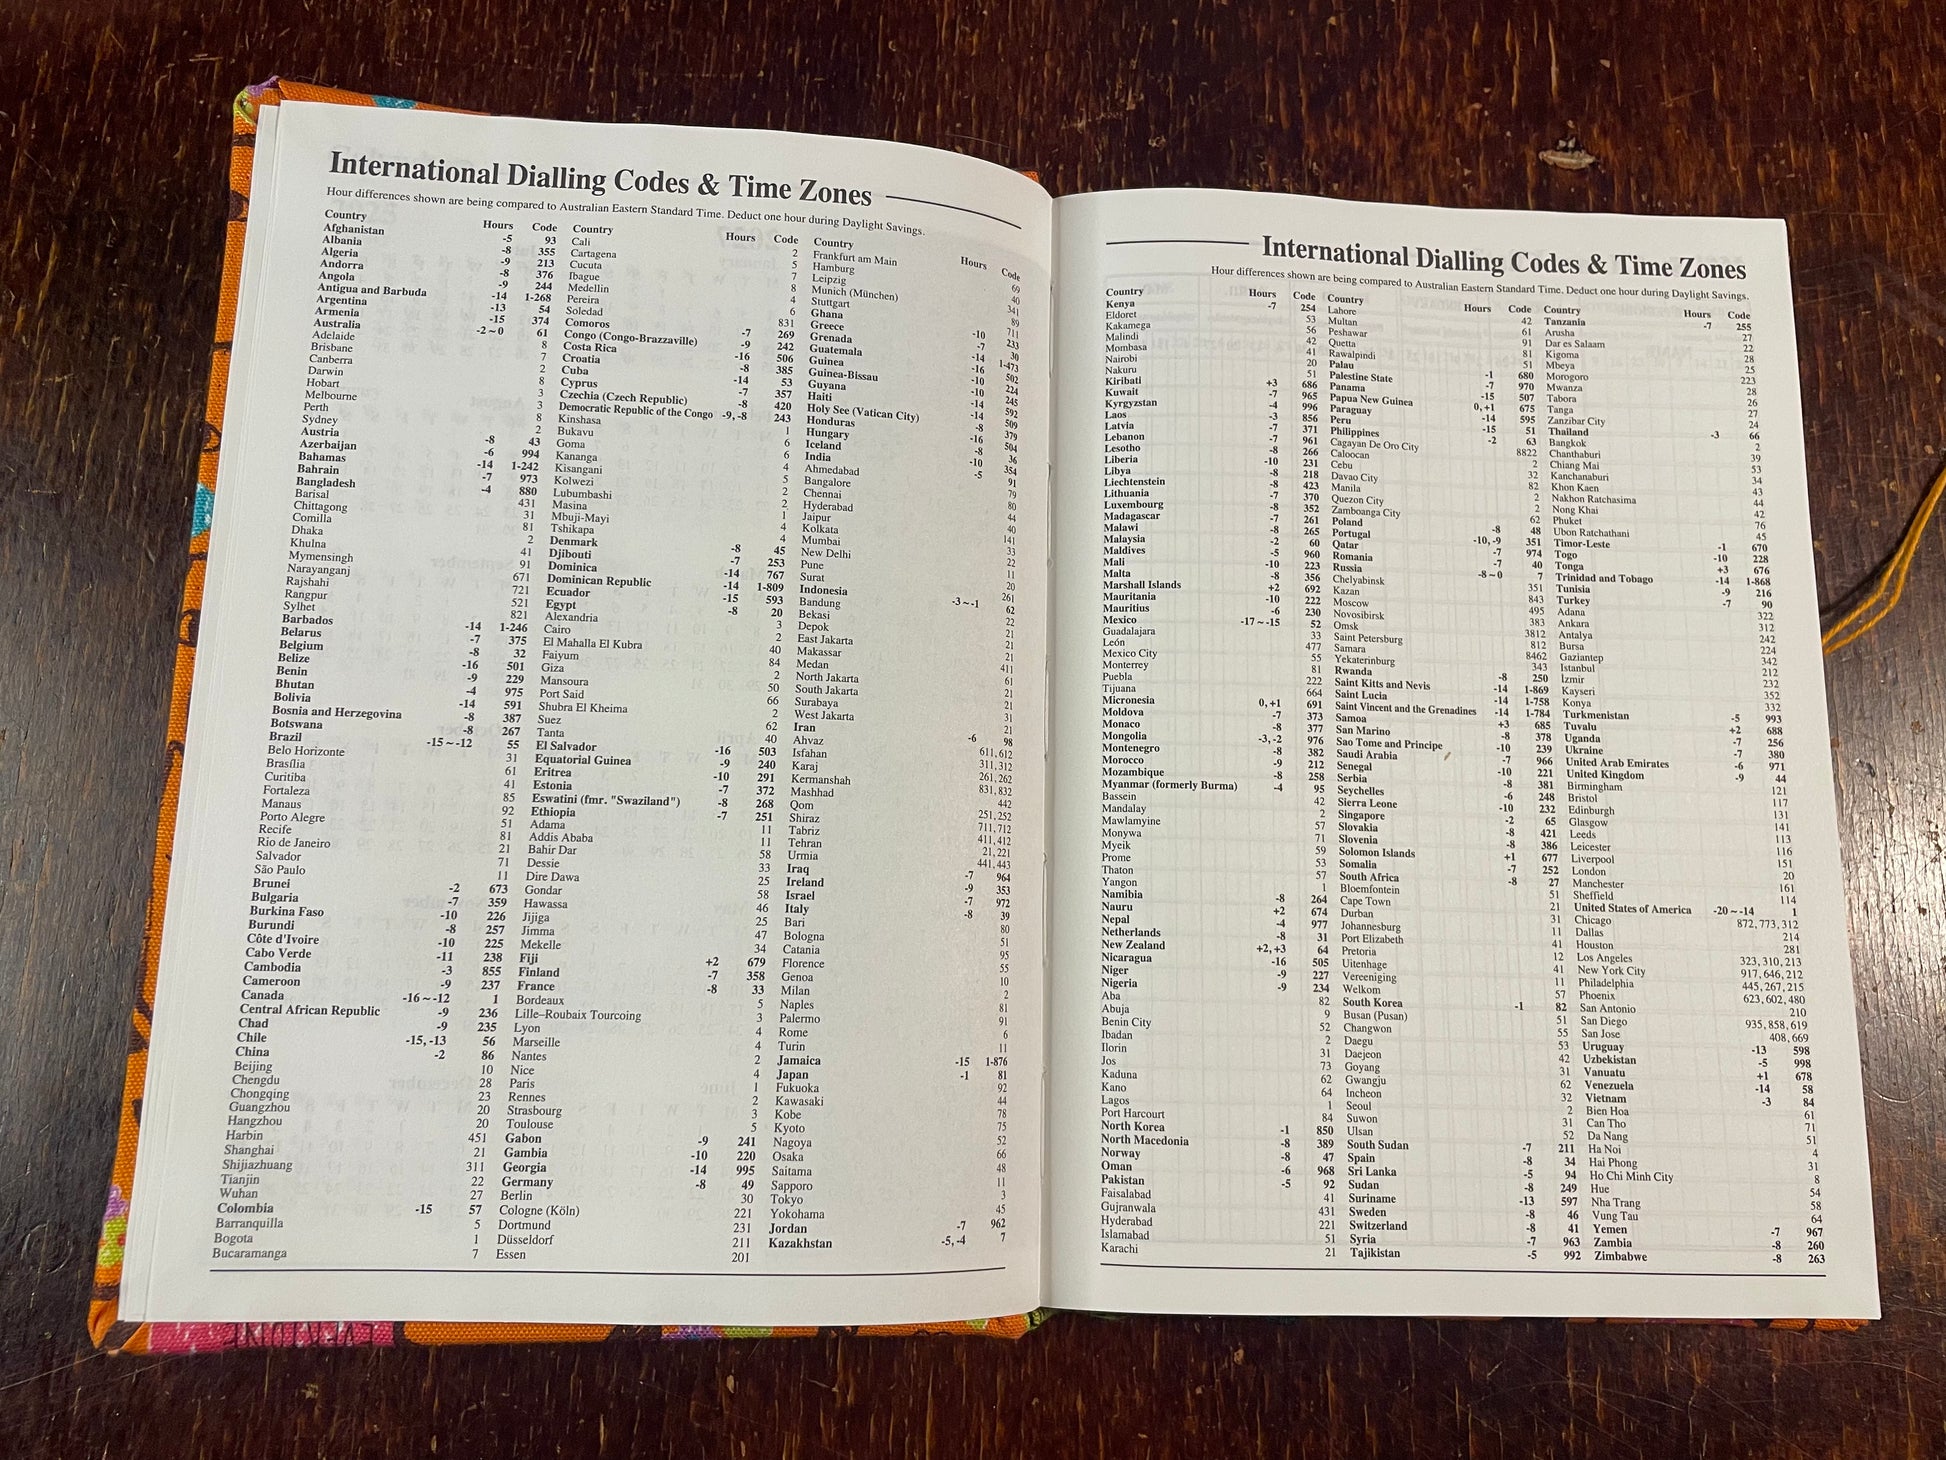 International Dialling Codes & Time Zones
Hour differences shown are being compared to Australian Eastern Standard Time. Deduct one hour during Daylight Savings.
Country Hours Code
Afghanistan -5 93
Albania -8 355
Algeria -9 213
Andorra -8 376
Angola -9 244
Antigua and Barbuda -14 1-268
Argentina -13 54
Armenia -15 374
Australia -2 ~ 0 61
Adelaide 8
Brisbane 7
Canberra 2
Darwin 8
Hobart 3
Melbourne 3
Perth 8
Sydney 2
Austria -8 43
Azerbaijan -6 994
Bahamas -14 1-242
Bahrain -7 973
Bangladesh -4 880
Barisal 431
Chittagong 31
Comilla 81
Dhaka 2
Khulna 41
Mymensingh 91
Narayanganj 671
Rajshahi 721
Rangpur 521
Sylhet 821
Barbados -14 1-246
Belarus -7 375
Belgium -8 32
Belize -16 501
Benin -9 229
Bhutan -4 975
Bolivia -14 591
Bosnia and Herzegovina -8 387
Botswana -8 267
Brazil -15 ~ -12 55
Belo Horizonte 31
Brasília 61
Curitiba 41
Fortaleza 85
Manaus 92
Porto Alegre 51
Recife 81
Rio de Janeiro 21
Salvador 71
São Paulo 11
Brunei -2 673
Bulgaria -7 359
Burkina Faso -10 226
Burundi -8 257
Côte d'Ivoire -10 225
Cabo Verde -11 238
Cambodia -3 855
Cameroon -9 237
Canada -16 ~ -12 1
Central African Republic -9 236
Chad -9 235
Chile -15, -13 56
China -2 86
Beijing 10
Chengdu 28
Chongqing 23
Guangzhou 20
Hangzhou 20
Harbin 451
Shanghai 21
Shijiazhuang 311
Tianjin 22
Wuhan 27
Colombia -15 57
Barranquilla 5
Bogota 1
Bucaramanga 7
Country Hours Code
Cali 2
Cartagena 5
Cucuta 7
Ibague 8
Medellin 4
Pereira 6
Soledad 831
Comoros -7 269
Congo (Congo-Brazzaville) -9 242
Costa Rica -16 506
Croatia -8 385
Cuba -14 53
Cyprus -7 357
Czechia (Czech Republic) -8 420
Democratic Republic of the Congo -9, -8 243
Kinshasa 1
Bukavu 6
Goma 6
Kananga 4
Kisangani 5
Kolwezi 2
Lubumbashi 2
Masina 1
Mbuji-Mayi 4
Tshikapa 4
Denmark -8 45
Djibouti -7 253
Dominica -14 767
Dominican Republic -14 1-809
Ecuador -15 593
Egypt -8 20
Alexandria 3
Cairo 2
El Mahalla El Kubra 40
Faiyum 84
Giza 2
Mansoura 50
Port Said 66
Shubra El Kheima 2
Suez 62
Tanta 40
El Salvador -16 503
Equatorial Guinea -9 240
Eritrea -10 291
Estonia -7 372
Eswatini (fmr. "Swaziland") -8 268
Ethiopia -7 251
Adama 11
Addis Ababa 11
Bahir Dar 58
Dessie 33
Dire Dawa 25
Gondar 58
Hawassa 46
Jijiga 25
Jimma 47
Mekelle 34
Fiji +2 679
Finland -7 358
France -8 33
Bordeaux 5
Lille–Roubaix Tourcoing 3
Lyon 4
Marseille 4
Nantes 2
Nice 4
Paris 1
Rennes 2
Strasbourg 3
Toulouse 5
Gabon -9 241
Gambia -10 220
Georgia -14 995
Germany -8 49
Berlin 30
Cologne (Köln) 221
Dortmund 231
Düsseldorf 211
Essen 201
Country Hours Code
Frankfurt am Main 69
Hamburg 40
Leipzig 341
Munich (München) 89
Stuttgart 711
Ghana -10 233
Greece -7 30
Grenada -14 1-473
Guatemala -16 502
Guinea -10 224
Guinea-Bissau -10 245
Guyana -14 592
Haiti -14 509
Holy See (Vatican City) -8 379
Honduras -16 504
Hungary -8 36
Iceland -10 354
India -5 91
Ahmedabad 79
Bangalore 80
Chennai 44
Hyderabad 40
Jaipur 141
Kolkata 33
Mumbai 22
New Delhi 11
Pune 20
Surat 261
Indonesia -3 ~ -1 62
Bandung 22
Bekasi 21
Depok 21
East Jakarta 21
Makassar 411
Medan 61
North Jakarta 21
South Jakarta 21
Surabaya 31
West Jakarta 21
Iran -6 98
Ahvaz 611, 612
Isfahan 311, 312
Karaj 261, 262
Kermanshah 831, 832
Mashhad 442
Qom 251, 252
Shiraz 711, 712
Tabriz 411, 412
Tehran 21, 221
Urmia 441, 443
Iraq -7 964
Ireland -9 353
Israel -7 972
Italy -8 39
Bari 80
Bologna 51
Catania 95
Florence 55
Genoa 10
Milan 2
Naples 81
Palermo 91
Rome 6
Turin 11
Jamaica -15 1-876
Japan -1 81
Fukuoka 92
Kawasaki 44
Kobe 78
Kyoto 75
Nagoya 52
Osaka 66
Saitama 48
Sapporo 11
Tokyo 3
Yokohama 45
Jordan -7 962
Kazakhstan -5, -4 7
International Dialling Codes & Time Zones
Hour differences shown are being compared to Australian Eastern Standard Time. Deduct one hour during Daylight Savings.
Country Hours Code
Kenya -7 254
Eldoret 53
Kakamega 56
Malindi 42
Mombasa 41
Nairobi 20
Nakuru 51
Kiribati +3 686
Kuwait -7 965
Kyrgyzstan -4 996
Laos -3 856
Latvia -7 371
Lebanon -7 961
Lesotho -8 266
Liberia -10 231
Libya -8 218
Liechtenstein -8 423
Lithuania -7 370
Luxembourg -8 352
Madagascar -7 261
Malawi -8 265
Malaysia -2 60
Maldives -5 960
Mali -10 223
Malta -8 356
Marshall Islands +2 692
Mauritania -10 222
Mauritius -6 230
Mexico -17 ~ -15 52
Guadalajara 33
León 477
Mexico City 55
Monterrey 81
Puebla 222
Tijuana 664
Micronesia 0, +1 691
Moldova -7 373
Monaco -8 377
Mongolia -3, -2 976
Montenegro -8 382
Morocco -9 212
Mozambique -8 258
Myanmar (formerly Burma) -4 95
Bassein 42
Mandalay 2
Mawlamyine 57
Monywa 71
Myeik 59
Prome 53
Thaton 57
Yangon 1
Namibia -8 264
Nauru +2 674
Nepal -4 977
Netherlands -8 31
New Zealand +2, +3 64
Nicaragua -16 505
Niger -9 227
Nigeria -9 234
Aba 82
Abuja 9
Benin City 52
Ibadan 2
Ilorin 31
Jos 73
Kaduna 62
Kano 64
Lagos 1
Port Harcourt 84
North Korea -1 850
North Macedonia -8 389
Norway -8 47
Oman -6 968
Pakistan -5 92
Faisalabad 41
Gujranwala 431
Hyderabad 221
Islamabad 51
Karachi 21
Country Hours Code
Lahore 42
Multan 61
Peshawar 91
Quetta 81
Rawalpindi 51
Palau -1 680
Palestine State -7 970
Panama -15 507
Papua New Guinea 0, +1 675
Paraguay -14 595
Peru -15 51
Philippines -2 63
Cagayan De Oro City 8822
Caloocan 2
Cebu 32
Davao City 82
Manila 2
Quezon City 2
Zamboanga City 62
Poland -8 48
Portugal -10, -9 351
Qatar -7 974
Romania -7 40
Russia -8 ~ 0 7
Chelyabinsk 351
Kazan 843
Moscow 495
Novosibirsk 383
Omsk 3812
Saint Petersburg 812
Samara 8462
Yekaterinburg 343
Rwanda -8 250
Saint Kitts and Nevis -14 1-869
Saint Lucia -14 1-758
Saint Vincent and the Grenadines -14 1-784
Samoa +3 685
San Marino -8 378
Sao Tome and Principe -10 239
Saudi Arabia -7 966
Senegal -10 221
Serbia -8 381
Seychelles -6 248
Sierra Leone -10 232
Singapore -2 65
Slovakia -8 421
Slovenia -8 386
Solomon Islands +1 677
Somalia -7 252
South Africa -8 27
Bloemfontein 51
Cape Town 21
Durban 31
Johannesburg 11
Port Elizabeth 41
Pretoria 12
Uitenhage 41
Vereeniging 11
Welkom 57
South Korea -1 82
Busan (Pusan) 51
Changwon 55
Daegu 53
Daejeon 42
Goyang 31
Gwangju 62
Incheon 32
Seoul 2
Suwon 31
Ulsan 52
South Sudan -7 211
Spain -8 34
Sri Lanka -5 94
Sudan -8 249
Suriname -13 597
Sweden -8 46
Switzerland -8 41
Syria -7 963
Tajikistan -5 992
Country Hours Code
Tanzania -7 255
Arusha 27
Dar es Salaam 22
Kigoma 28
Mbeya 25
Morogoro 223
Mwanza 28
Tabora 26
Tanga 27
Zanzibar City 24
Thailand -3 66
Bangkok 2
Chanthaburi 39
Chiang Mai 53
Kanchanaburi 34
Khon Kaen 43
Nakhon Ratchasima 44
Nong Khai 42
Phuket 76
Ubon Ratchathani 45
Timor-Leste -1 670
Togo -10 228
Tonga +3 676
Trinidad and Tobago -14 1-868
Tunisia -9 216
Turkey -7 90
Adana 322
Ankara 312
Antalya 242
Bursa 224
Gaziantep 342
Istanbul 212
Izmir 232
Kayseri 352
Konya 332
Turkmenistan -5 993
Tuvalu +2 688
Uganda -7 256
Ukraine -7 380
United Arab Emirates -6 971
United Kingdom -9 44
Birmingham 121
Bristol 117
Edinburgh 131
Glasgow 141
Leeds 113
Leicester 116
Liverpool 151
London 20
Manchester 161
Sheffield 114
United States of America -20 ~ -14 1
Chicago 872, 773, 312
Dallas 214
Houston 281
Los Angeles 323, 310, 213
New York City 917, 646, 212
Philadelphia 445, 267, 215
Phoenix 623, 602, 480
San Antonio 210
San Diego 935, 858, 619
San Jose 408, 669
Uruguay -13 598
Uzbekistan -5 998
Vanuatu +1 678
Venezuela -14 58
Vietnam -3 84
Bien Hoa 61
Can Tho 71
Da Nang 51
Ha Noi 4
Hai Phong 31
Ho Chi Minh City 8
Hue 54
Nha Trang 58
Vung Tau 64
Yemen -7 967
Zambia -8 260
Zimbabwe -8 263